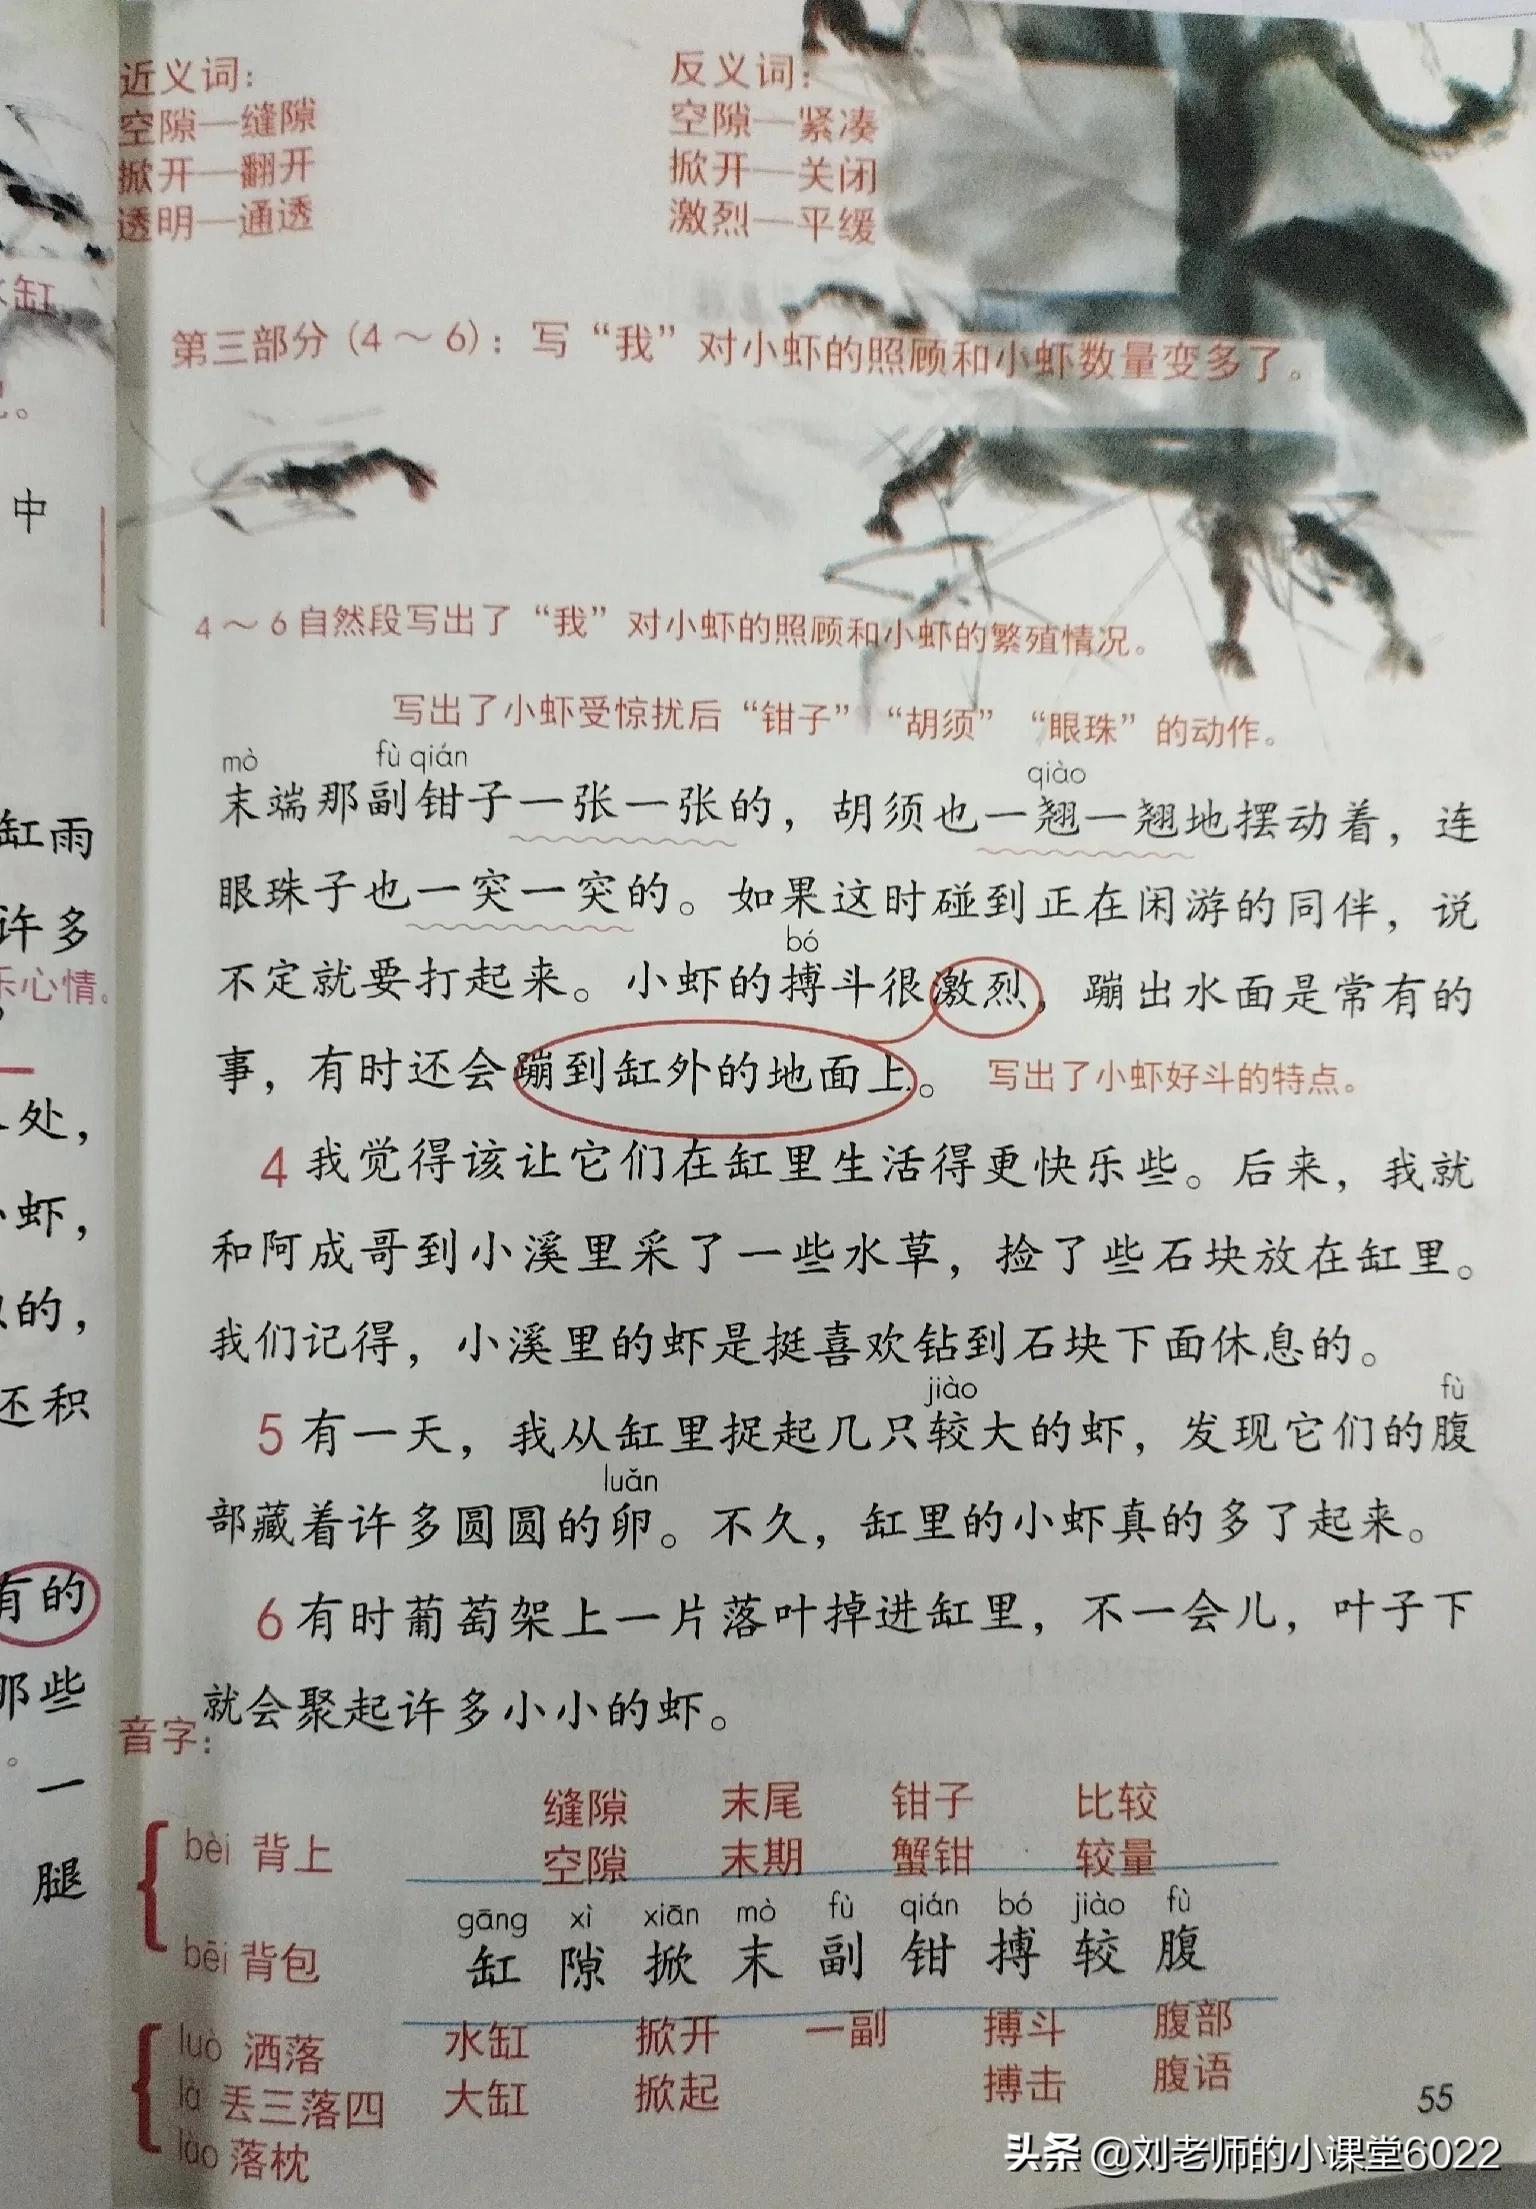 近义词：
空隙—缝隙
掀开—翻开
透明—通透
反义词：
空隙—紧凑
掀开—关闭
激烈—平缓
第三部分（4～6）：写“我”对小虾的照顾和小虾数量变多了。
4～6自然段写出了“我”对小虾的照顾和小虾的繁殖情况。
写出了小虾受惊扰后“钳子”“胡须”“眼珠”的动作。
mò fù qián qiào
末端那副钳子一张一张的，胡须也一翘一翘地摆动着，连
眼珠子也一突一突的。如果这时碰到正在闲游的同伴，说
bó
不定就要打起来。小虾的搏斗很激烈，蹦出水面是常有的
事，有时还会蹦到缸外的地面上。 写出了小虾好斗的特点。
4 我觉得该让它们在缸里生活得更快乐些。后来，我就
和阿成哥到小溪里采了一些水草，捡了些石块放在缸里。
我们记得，小溪里的虾是挺喜欢钻到石块下面休息的。
jiào fù
5 有一天，我从缸里捉起几只较大的虾，发现它们的腹
luǎn
部藏着许多圆圆的卵。不久，缸里的小虾真的多了起来。
6 有时葡萄架上一片落叶掉进缸里，不一会儿，叶子下
就会聚起许多小小的虾。
音字：
bèi 背上
bēi 背包
luò 洒落
là 丢三落四
lào 落枕
缝隙 末尾 钳子 比较
空隙 末期 蟹钳 较量
gāng xì xiān mò fù qián bó jiào fù
缸 隙 掀 末 副 钳 搏 较 腹
水缸 掀开 一副 搏斗 腹部
大缸 掀起 搏击 腹语
55
缸
中
缸雨
许多
乐心情。
处，
虾，
的，
还积
有的
那些
。
一
腿
头条 @刘老师的小课堂6022